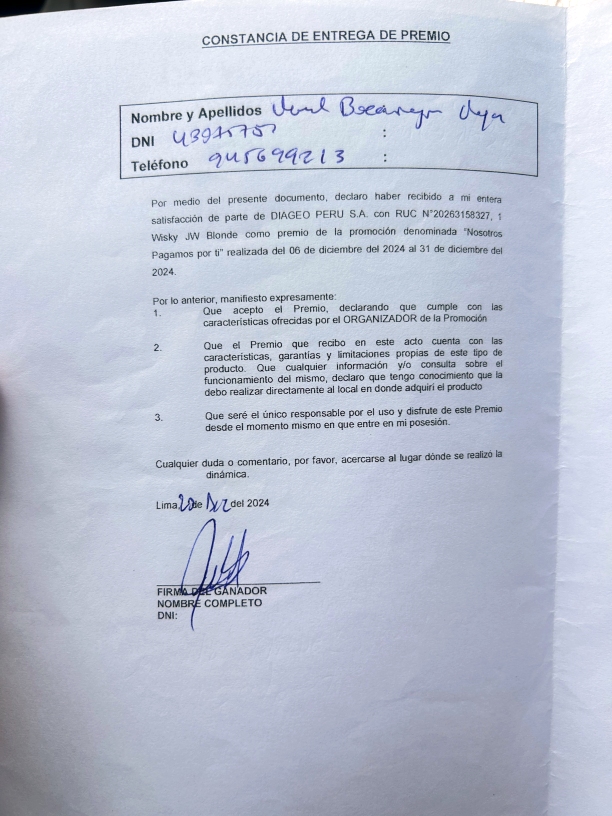 CONSTANCIA DE ENTREGA DE PREMIO
Nombre y Apellidos
DNI :
Teléfono 945699213 :
Por medio del presente documento, declaro haber recibido a mi entera
satisfacción de parte de DIAGEO PERU S.A. con RUC N°20263158327, 1
Wisky JW Blonde como premio de la promoción denominada "Nosotros
Pagamos por ti" realizada del 06 de diciembre del 2024 al 31 de diciembre del
2024.
Por lo anterior, manifiesto expresamente:
1. Que acepto el Premio, declarando que cumple con las
características ofrecidas por el ORGANIZADOR de la Promoción
2. Que el Premio que recibo en este acto cuenta con las
características, garantías y limitaciones propias de este tipo de
producto. Que cualquier información y/o consulta sobre el
funcionamiento del mismo, declaro que tengo conocimiento que la
debo realizar directamente al local en donde adquirí el producto
3. Que seré el único responsable por el uso y disfrute de este Premio
desde el momento mismo en que entre en mi posesión.
Cualquier duda o comentario, por favor, acercarse al lugar dónde se realizó la
dinámica.
Lima, de del 2024
FIRMA DEL GANADOR
NOMBRE COMPLETO
DNI: